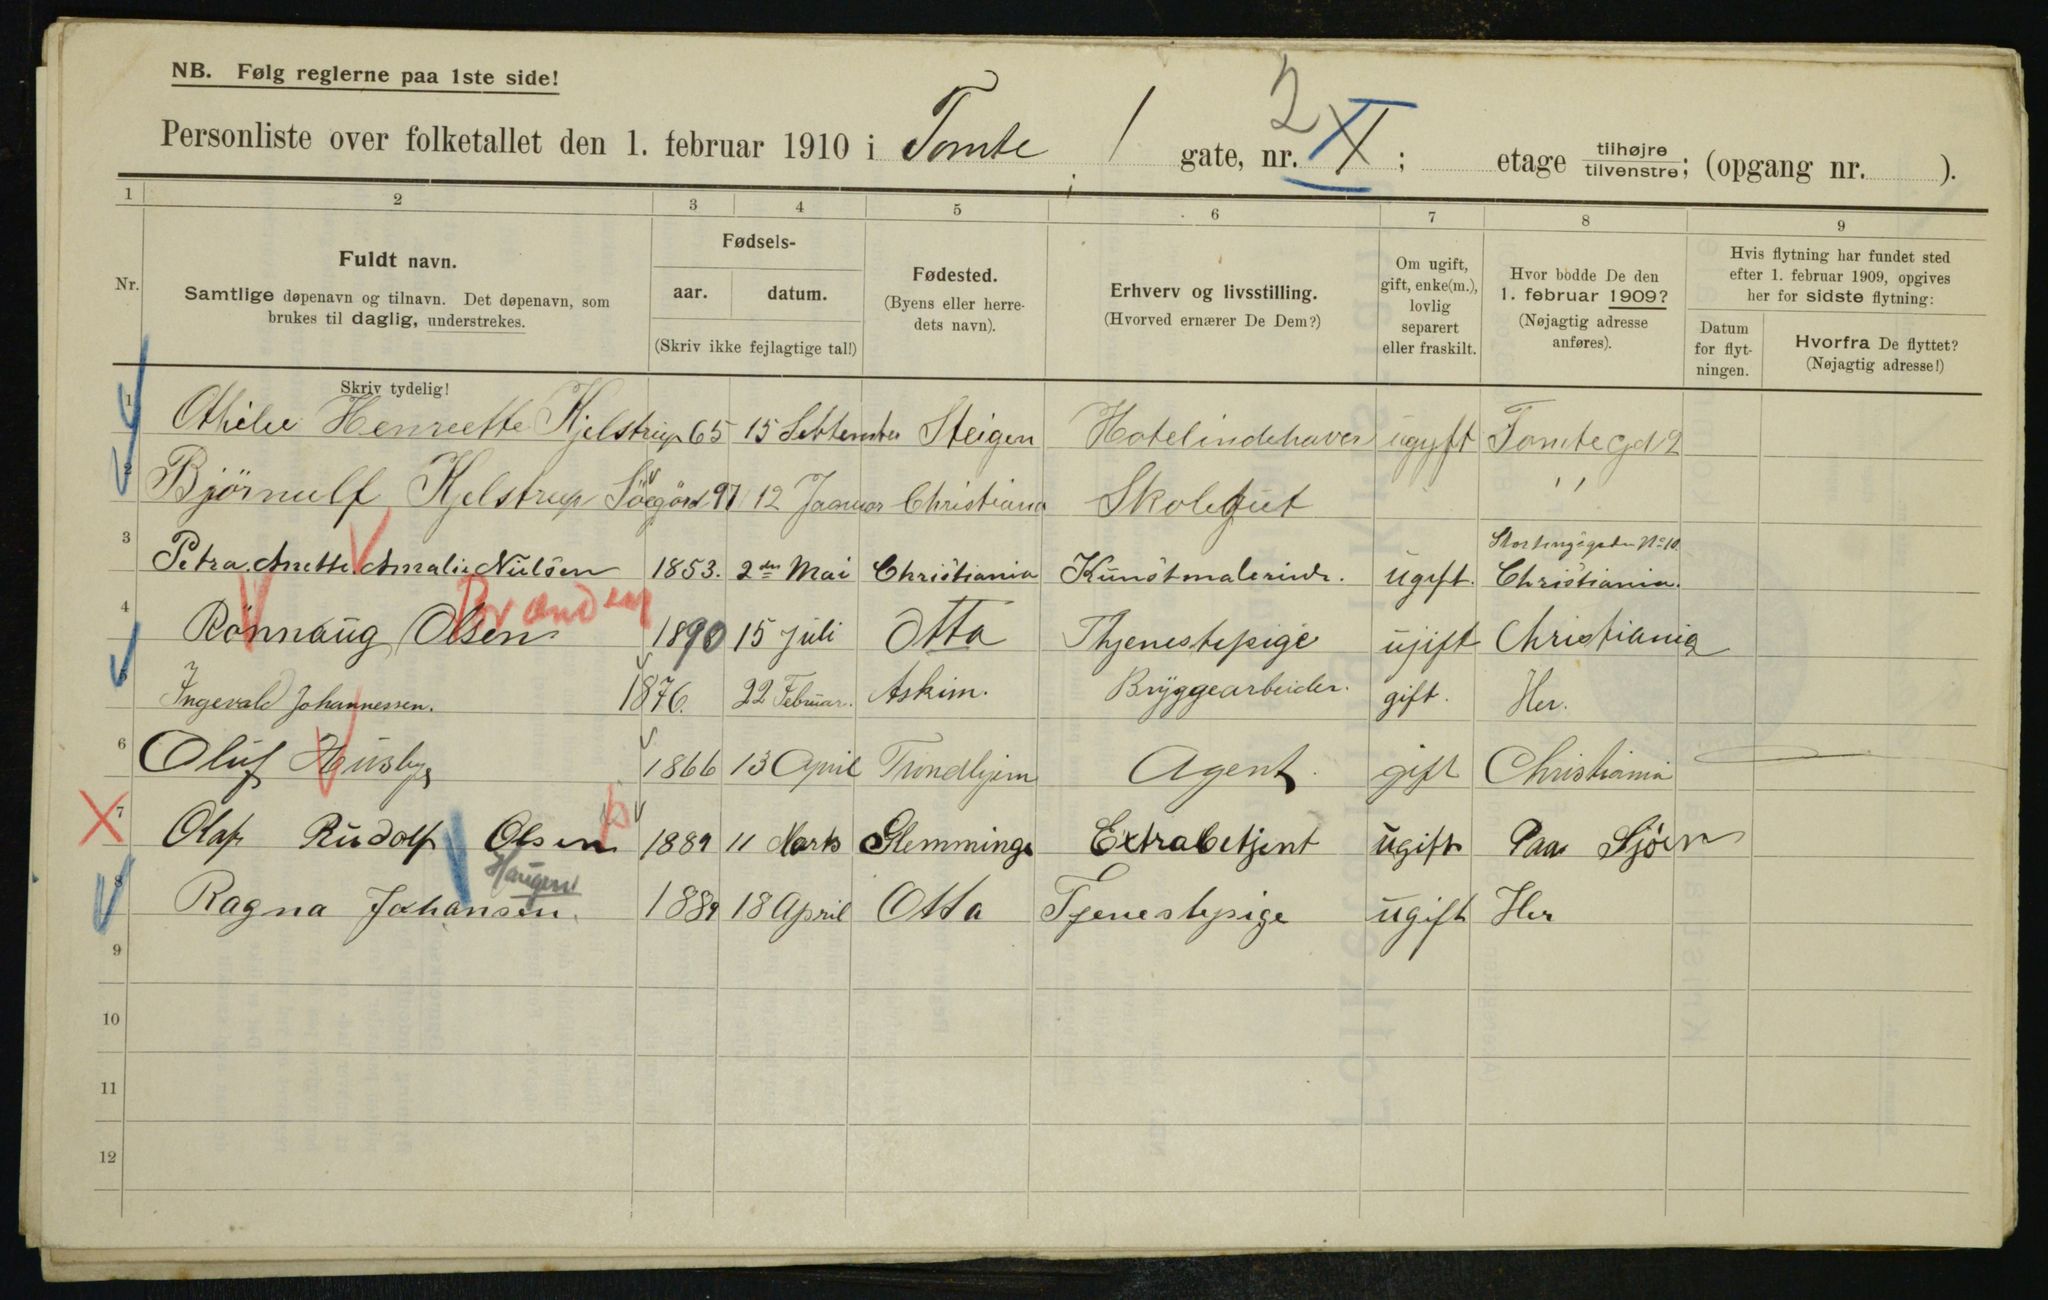 NB. Følg reglerne paa 1ste side!
Personliste over folketallet den 1. februar 1910 i Tomte gate, nr. 2 XI; etage tilhøjre tilvenstre; (opgang nr. ).
1 2 3 4 5 6 7 8 9
Nr.
Fuldt navn.
Samtlige døpenavn og tilnavn. Det døpenavn, som
brukes til daglig, understrekes.
Skriv tydelig!
Fødsels-
aar. datum.
(Skriv ikke fejlagtige tal!)
Fødested.
(Byens eller herre-
dets navn).
Erhverv og livsstilling.
(Hvorved ernærer De Dem?)
Om ugift,
gift, enke(m.),
lovlig
separert
eller fraskilt.
Hvor bodde De den
1. februar 1909?
(Nøjagtig adresse
anføres).
Hvis flytning har fundet sted
efter 1. februar 1909, opgives
her for sidste flytning:
Datum
for flyt-
ningen.
Hvorfra De flyttet?
(Nøjagtig adresse!)
1 Othilie Henreette Kjelstrup 65 15 September Steigen Hotelindehaver ugyft Tomtegd 2
2 Bjørnulf Kjelstrup 97 12 Januar Christiana Skolegut ,,
3 Petra Anette Amalie Nielsen 1853. 2den Mai Christiania Kunstmalerinde. ugift. Stortingsgaden No 10 Christiania.
Brænden
4 Rönnaug Olsen 1890 15 Juli Otta Thjenestepige ugift Christiania
Ingevald Johannessen. 1876. 22 Februar. Askim. Bryggearbeider. gift. Her.
6 Oluf Husby 1866 13 April Trondhjem Agent. gift Christiania
7 Olaf Rudolf Olsen 1889 11 Marts Glemminge Extrabetjent ugift Paa Sjøen
Haugen
8 Ragna Johansen 1889 18 April Otta Tjenestepige ugift Her
9
10
11
12